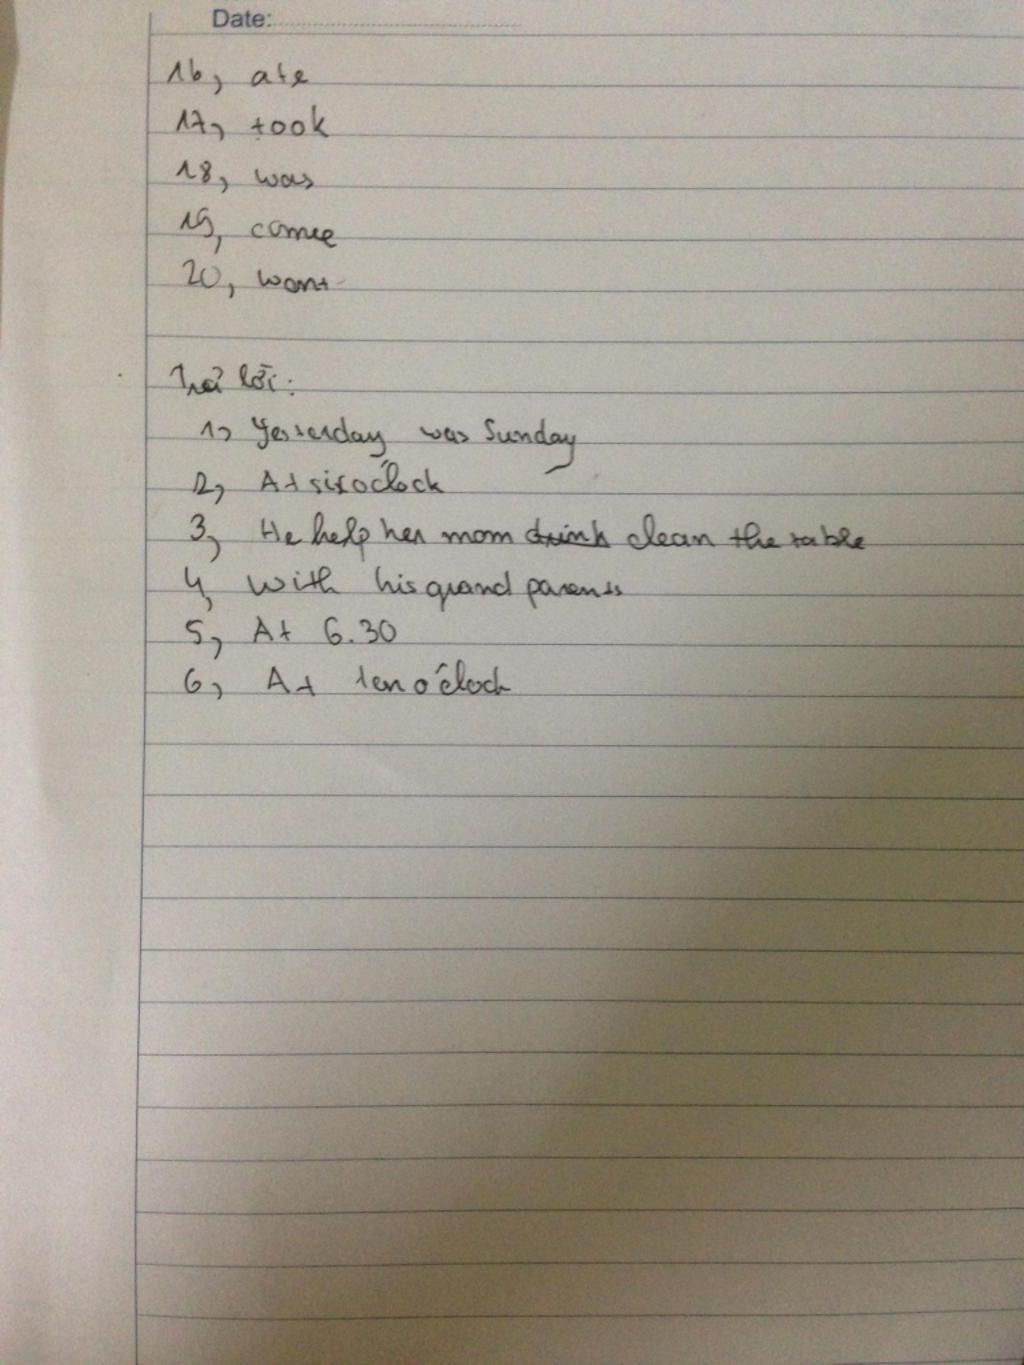 Date:
16, ate
17, took
18, was
19, come
20, want
Trả lời:
1, Yesterday was Sunday
2, At six o'clock
3, He help her mom drink clean the table
4, With his grand parents
5, At 6.30
6, At ten o'clock